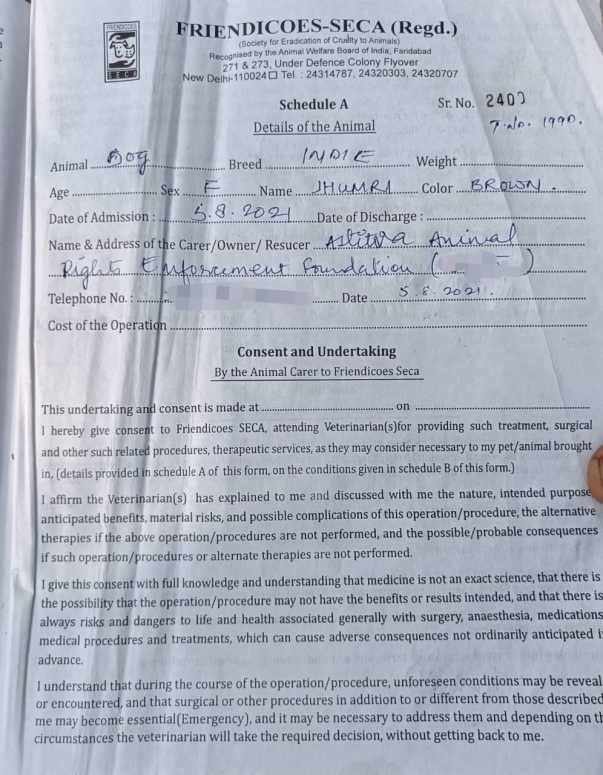 FRIENDICOES
SECA
FRIENDICOES-SECA (Regd.)
(Society for Eradication of Cruelty to Animals)
Recognised by the Animal Welfare Board of India, Faridabad
271 & 273, Under Defence Colony Flyover
New Delhi-110024 Tel. : 24314787, 24320303, 24320707
Schedule A
Sr. No. 2403
Details of the Animal
T.No. 1990.
Animal Dog Breed INDIE Weight
Age Sex F Name JHUMRI Color BROWN.
Date of Admission : 5.8.2021 Date of Discharge :
Name & Address of the Carer/Owner/ Resucer Astitva Animal
Rights Enforcement Foundation (
Telephone No. : Date 5.8.2021.
Cost of the Operation
Consent and Undertaking
By the Animal Carer to Friendicoes Seca
This undertaking and consent is made at on
I hereby give consent to Friendicoes SECA, attending Veterinarian(s)for providing such treatment, surgical
and other such related procedures, therapeutic services, as they may consider necessary to my pet/animal brought
in, (details provided in schedule A of this form, on the conditions given in schedule B of this form.)
I affirm the Veterinarian(s) has explained to me and discussed with me the nature, intended purpose
anticipated benefits, material risks, and possible complications of this operation/procedure, the alternative
therapies if the above operation/procedures are not performed, and the possible/probable consequences
if such operation/procedures or alternate therapies are not performed.
I give this consent with full knowledge and understanding that medicine is not an exact science, that there is
the possibility that the operation/procedure may not have the benefits or results intended, and that there is
always risks and dangers to life and health associated generally with surgery, anaesthesia, medications
medical procedures and treatments, which can cause adverse consequences not ordinarily anticipated i
advance.
I understand that during the course of the operation/procedure, unforeseen conditions may be reveal
or encountered, and that surgical or other procedures in addition to or different from those described
me may become essential(Emergency), and it may be necessary to address them and depending on th
circumstances the veterinarian will take the required decision, without getting back to me.